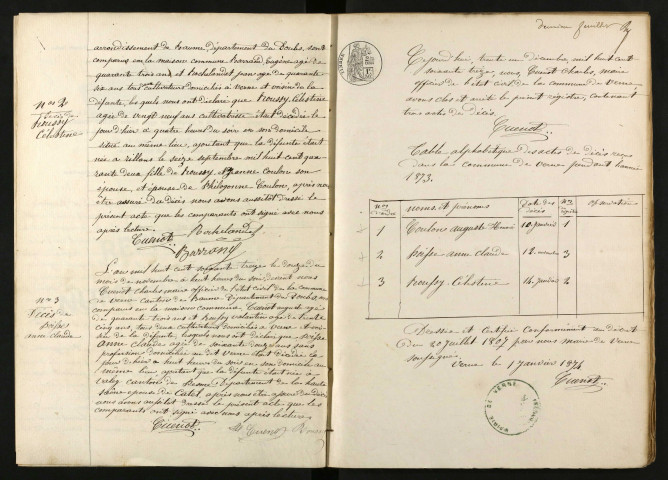 arrondissement de Baume, département du Doubs, sont
comparus en la maison commune Eugène agé de
quarante trois ans et Rochelandet agé de quarante
six ans tous cultivateurs domiciliés à Verne et voisins de la
défunte, les quels nous ont déclaré que Roussy Célestine
agée de vingt neuf ans cultivatrice était décédée le
jour d'hier a quatre heures du soir en son domicile
situé au même lieu, ajoutant que la défunte était
née à Rillans le seize septembre mil huit cent qua
rante deux fille de Roussy et Jeanne Coulon son
épouse, et épouse de Philogone Toulon, après nous
être assuré du décès nous avons aussitôt dressé le
présent acte que les comparants ont signé avec nous
après lecture.
Cuenot Rochelandet
Barrand
N° 2
Décès de
Roussy
Célestine
L'an mil huit cent soixante treize le douze du
mois de novembre a huit heures du soir devant nous
Cuenot Charles maire officier de l'état civil de la commune
de Verne canton de Baume Département du Doubs, sont
comparus en la maison commune, Cuenot auguste agé
de quarante trois ans et Roussy valentin agé de trente
cinq ans, tous deux cultivateurs domiciliés à Verne et voi
sins de la défunte, lesquels nous ont déclaré que
anne claude agée de soixante douze ans sans
profession domiciliée au dit Verne était décédée le
jour d'hier a huit heures du soir en son domicile au
même lieu ajoutant que la défunte était née a
canton de Département de la haute
Saône épouse de Calet, après nous être assuré du décès
nous avons aussitôt dressé le présent acte que les
comparants ont signé avec nous après lecture
Cuenot Cuenot
N° 3
Décès de
anne claude
dernier feuillet
Cejourd'hui, trente un décembre, mil huit cent
soixante treize, nous Cuenot Charles, maire
officier de l'état civil de la commune de Verne,
avons clos et arrêté le présent registre, contenant
trois actes de décès.
Cuenot
Table alphabétique des actes de décès reçus
dans la commune de Verne pendant l'année
1873.
Nos d'ordre noms et prénoms Date des décès Nos du registre observation
1 Toulon auguste 10 janvier 1
2 anne claude 12 novembre 3
3 Roussy Célestine 14 2
Dressée et Certifiée Conformément au décret
du 20 juillet 1807 par nous maire de Verne
soussigné.
Verne le 1 janvier 1874
Cuenot
MAIRIE DE VERNE